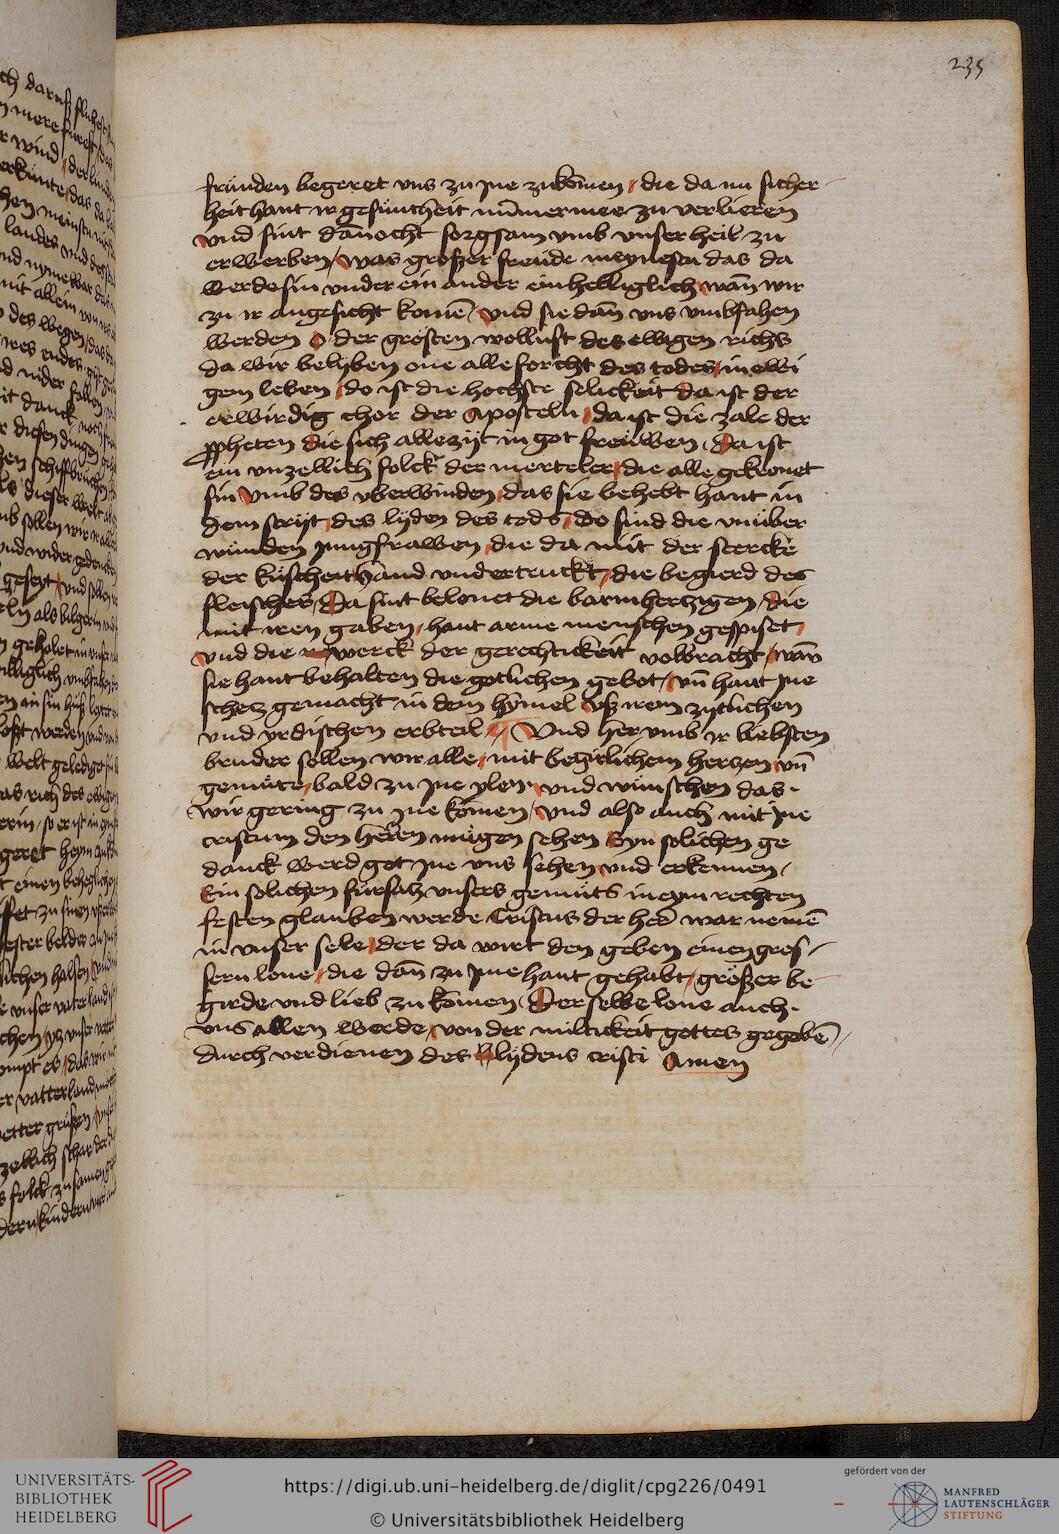 235
frunden begeret vns zu jne zukōmen / die da nu sicher
heit hant ir gesuntheit nūmermee zu verlieren
vnd sint dānocht sorgsam vmb vnser heil zu
erwerben / was großer freude meynestu das da
werde sin vnder ein ander einhelliglich wān wir
zu ir angesicht komē / vnd sie dān vns vmbfahen
werden O der grösten wollust des ewigen richs
da wir belyben one alle forcht des todes / in ewi
gem leben / do ist die hochste selickeit da ist der
erwirdig chor der Aposteln / da ist die zale der
ppheten die sich allezijt in got freuwen / Da ist
ein vnzellich folck der merteler / die alle gekronet
sin vmb des vberwinden / das sie behebt hant in
dem strijt / des lyden des tods / Do sind die vnüber
wunden jungfrawen / die da mit der stercke
der kuscheit hand vndertruckt / die begierd des
fleisches / Da sint belonet die barmhertzigen / die
mit iren gaben / hant arme menschen gespiset /
vnd die werck der gerechtickeit volbracht / wān
sie hant behalten die gotlichen gebot / vn̄ hant jne
schetz gemacht in dem hymel vß irem zytlichen
vnd yrdischen erbteil / Vnd her vmb ir liebsten
bruder sollen wir alle / mit begirlichem hertzen vn̄
gemute / bald zu jne ylen / vnd wunschen das
wir gering zu jne komen / vnd also auch mit jne
cristum den herren mügen sehen Syn solichen ge
danck werd got jne vns sehen vnd erkennen /
Ein solichen fursatz vnsers gemuts in eym rechten
festen glauben werde Cristus der her war nemē
in vnser sele / der da wirt den geben einen gros /
sern lone / die dān zu jme hant gehabt / größer be
girde vnd lieb zu komen / Der selbe lone auch
vns allen werde / von der miltickeit gottes gegebē /
durch verdienen des lijdens cristi Amen
UNIVERSITÄTS-
BIBLIOTHEK
HEIDELBERG
https://digi.ub.uni-heidelberg.de/diglit/cpg226/0491
© Universitätsbibliothek Heidelberg
gefördert von der
MANFRED
LAUTENSCHLÄGER
STIFTUNG